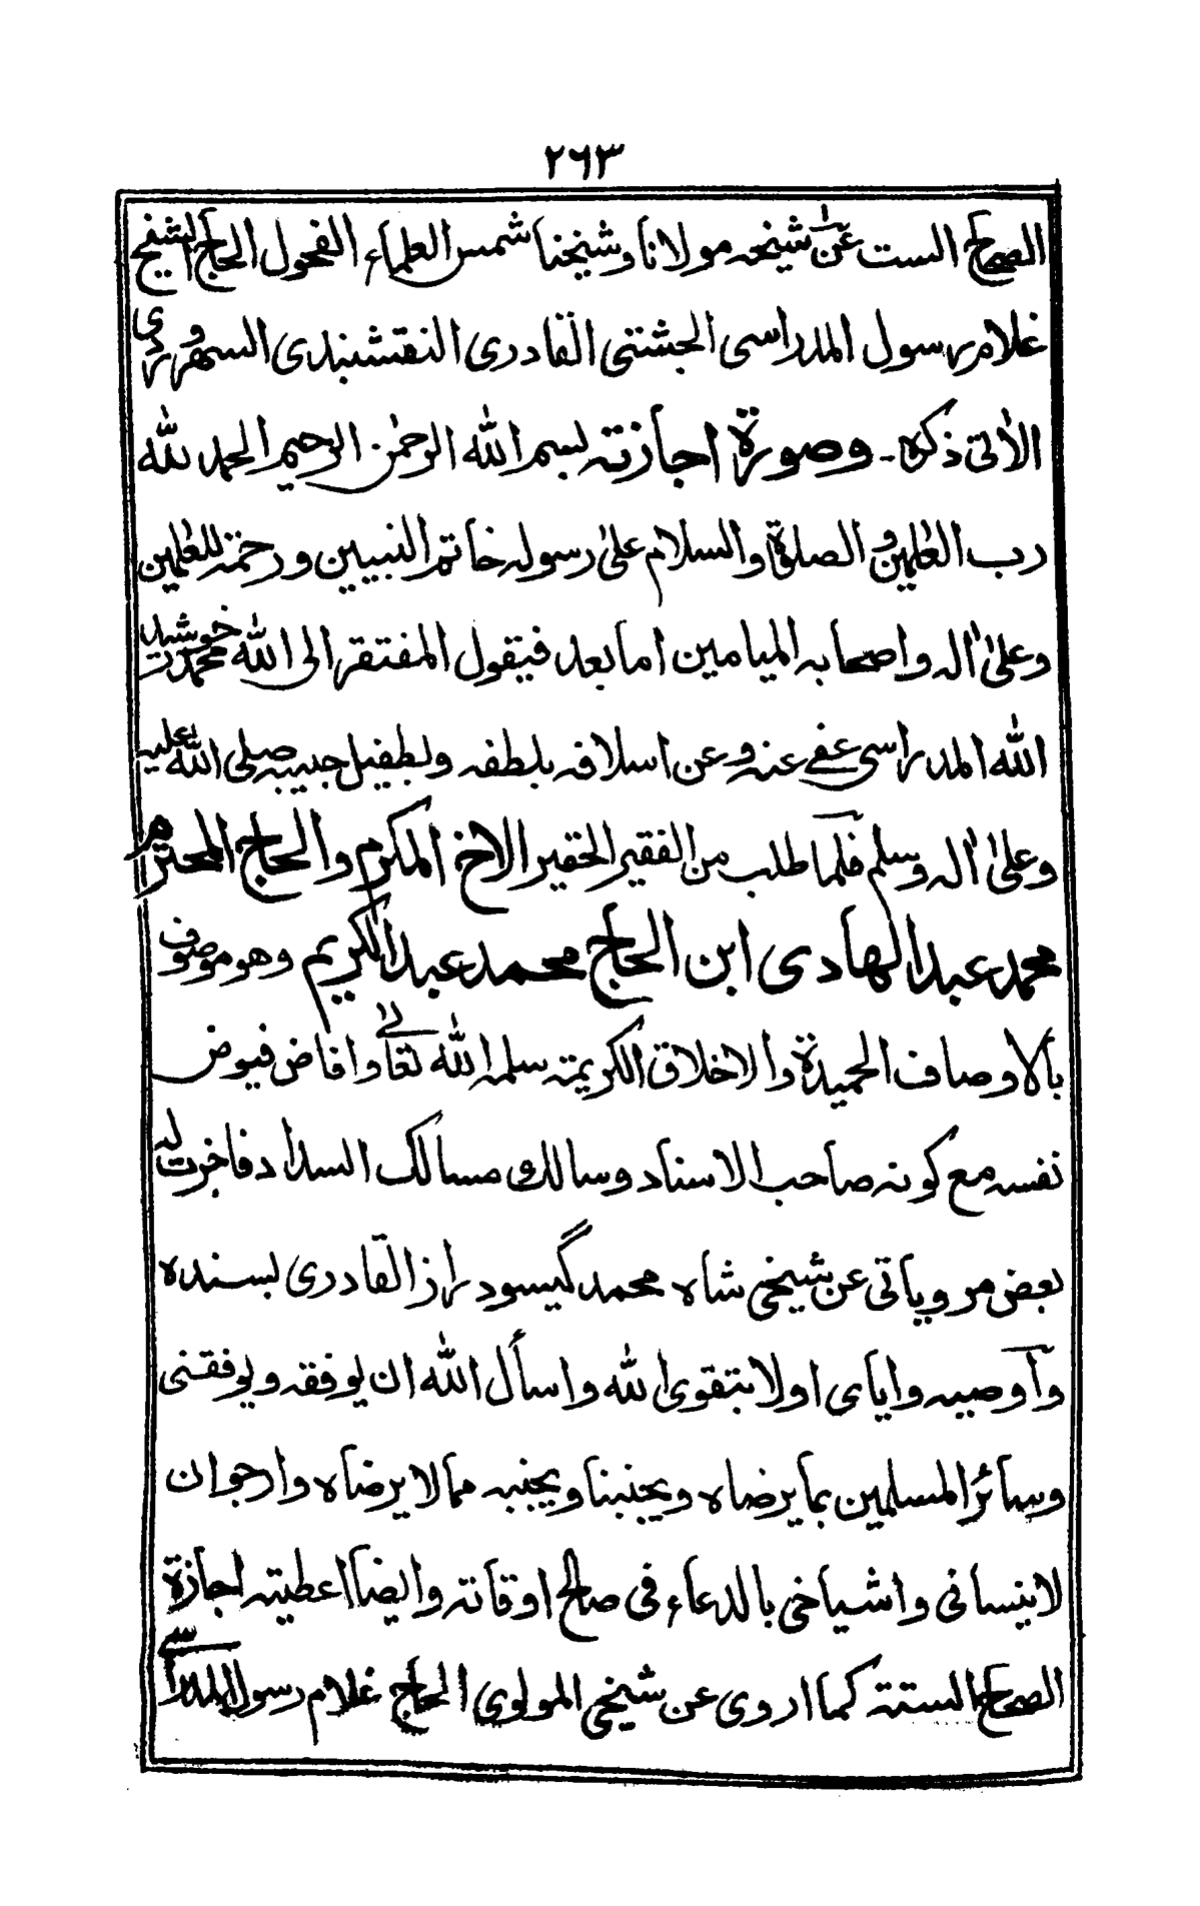 ٢٦٣
الصحاح الست عن شيخه مولانا وشيخنا شمس العلماء الفحول الحاج الشيخ
غلام رسول المدراسى الجشتى القادرى النقشبندى السهروردى
الاٰتى ذكره ـ وصورة اجازته بسم الله الرحمٰن الرحيم الحمد لله
رب العٰلمين و الصلوة والسلام علىٰ رسوله خاتم النبيين ورحمة للعٰلمين
وعلىٰ اٰله واصحابه الميامين امابعد فيقول المفتقر الى الله محمد خورشيد
الله المدراسى عفى عنه وعن اسلافه بلطفه ولطفيل حبيبه صلى الله عليه
وعلىٰ اٰله وسلم فلما طلب من الفقير الحقير الاخ المكرم والحاج المحترم
محمد عبد الهادى ابن الحاج محمد عبد الكريم وهو موصوف
بالاوصاف الحميدة والاخلاق الكريمة سلمه الله تعالى وافاض فيوض
نفسه مع كونه صاحب الاسناد وسالك مسالك السداد فاجزت له
بعض مروياتى عن شيخى شاه محمد گيسودراز القادرى بسنده
وأوصيه واياى اولا بتقوى الله واسأل الله ان يوفقه ويوفقنى
وسائر المسلمين بما يرضاه ويجنبنا ويجنبه مما لا يرضاه وارجو ان
لا ينسانى واشياخى بالدعاء فى صالح اوقاته وايضا اعطيته اجازة
الصحاح الستة كما اروى عن شيخى المولوى الحاج غلام رسول المدراسى